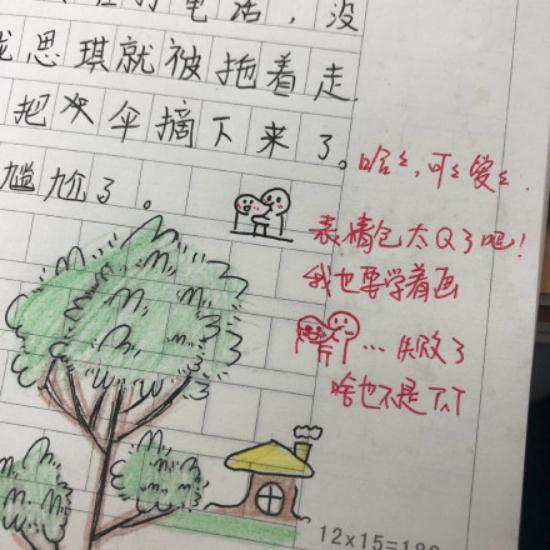 的电话，没
思琪就被拖着走
把伞摘下来了。
尴尬了。
哈哈，可可爱爱。
表情包太Q了吧！
我也要学着画
...失败了
啥也不是TAT
12×15=180